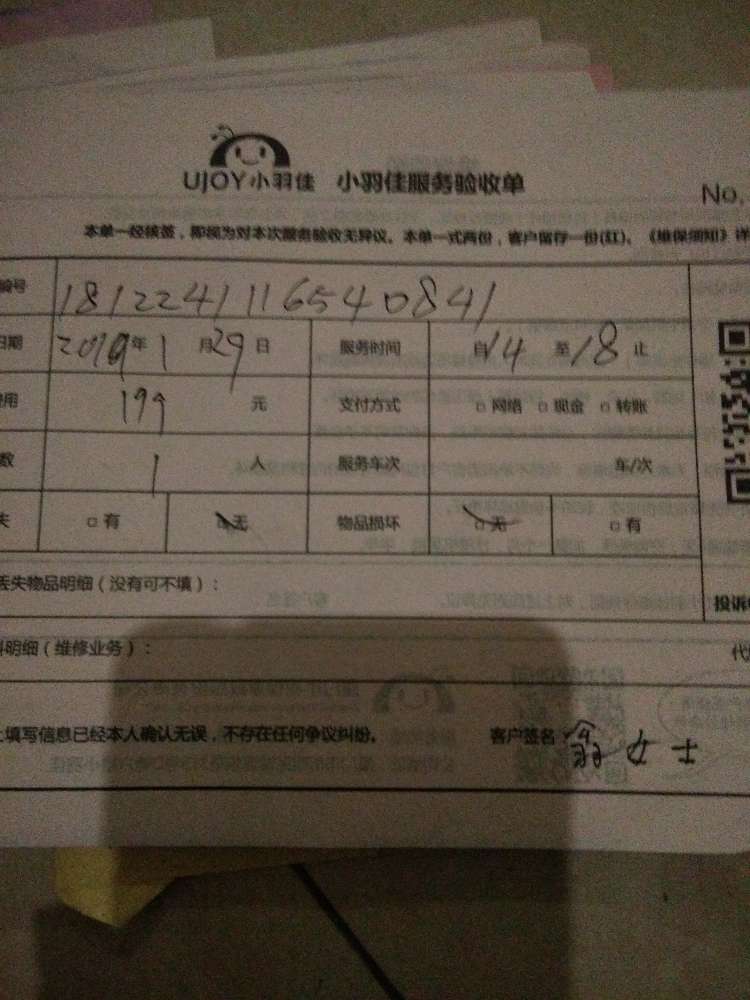 UJOY小羽佳 小羽佳服务验收单
No.
本单一经核签，即视为对本次服务验收无异议。本单一式两份，客户留存一份(红)。《维保须知》详
编号 181224116540841
日期 2019年1月29日 服务时间 自14至18止
费用 199 元 支付方式 □网络 □现金 □转账
数 1 人 服务车次 车/次
失 □有 □无 物品损坏 □无 □有
丢失物品明细（没有可不填）：
投诉
料明细（维修业务）：
代
上填写信息已经本人确认无误，不存在任何争议纠纷。 客户签名 翁女士